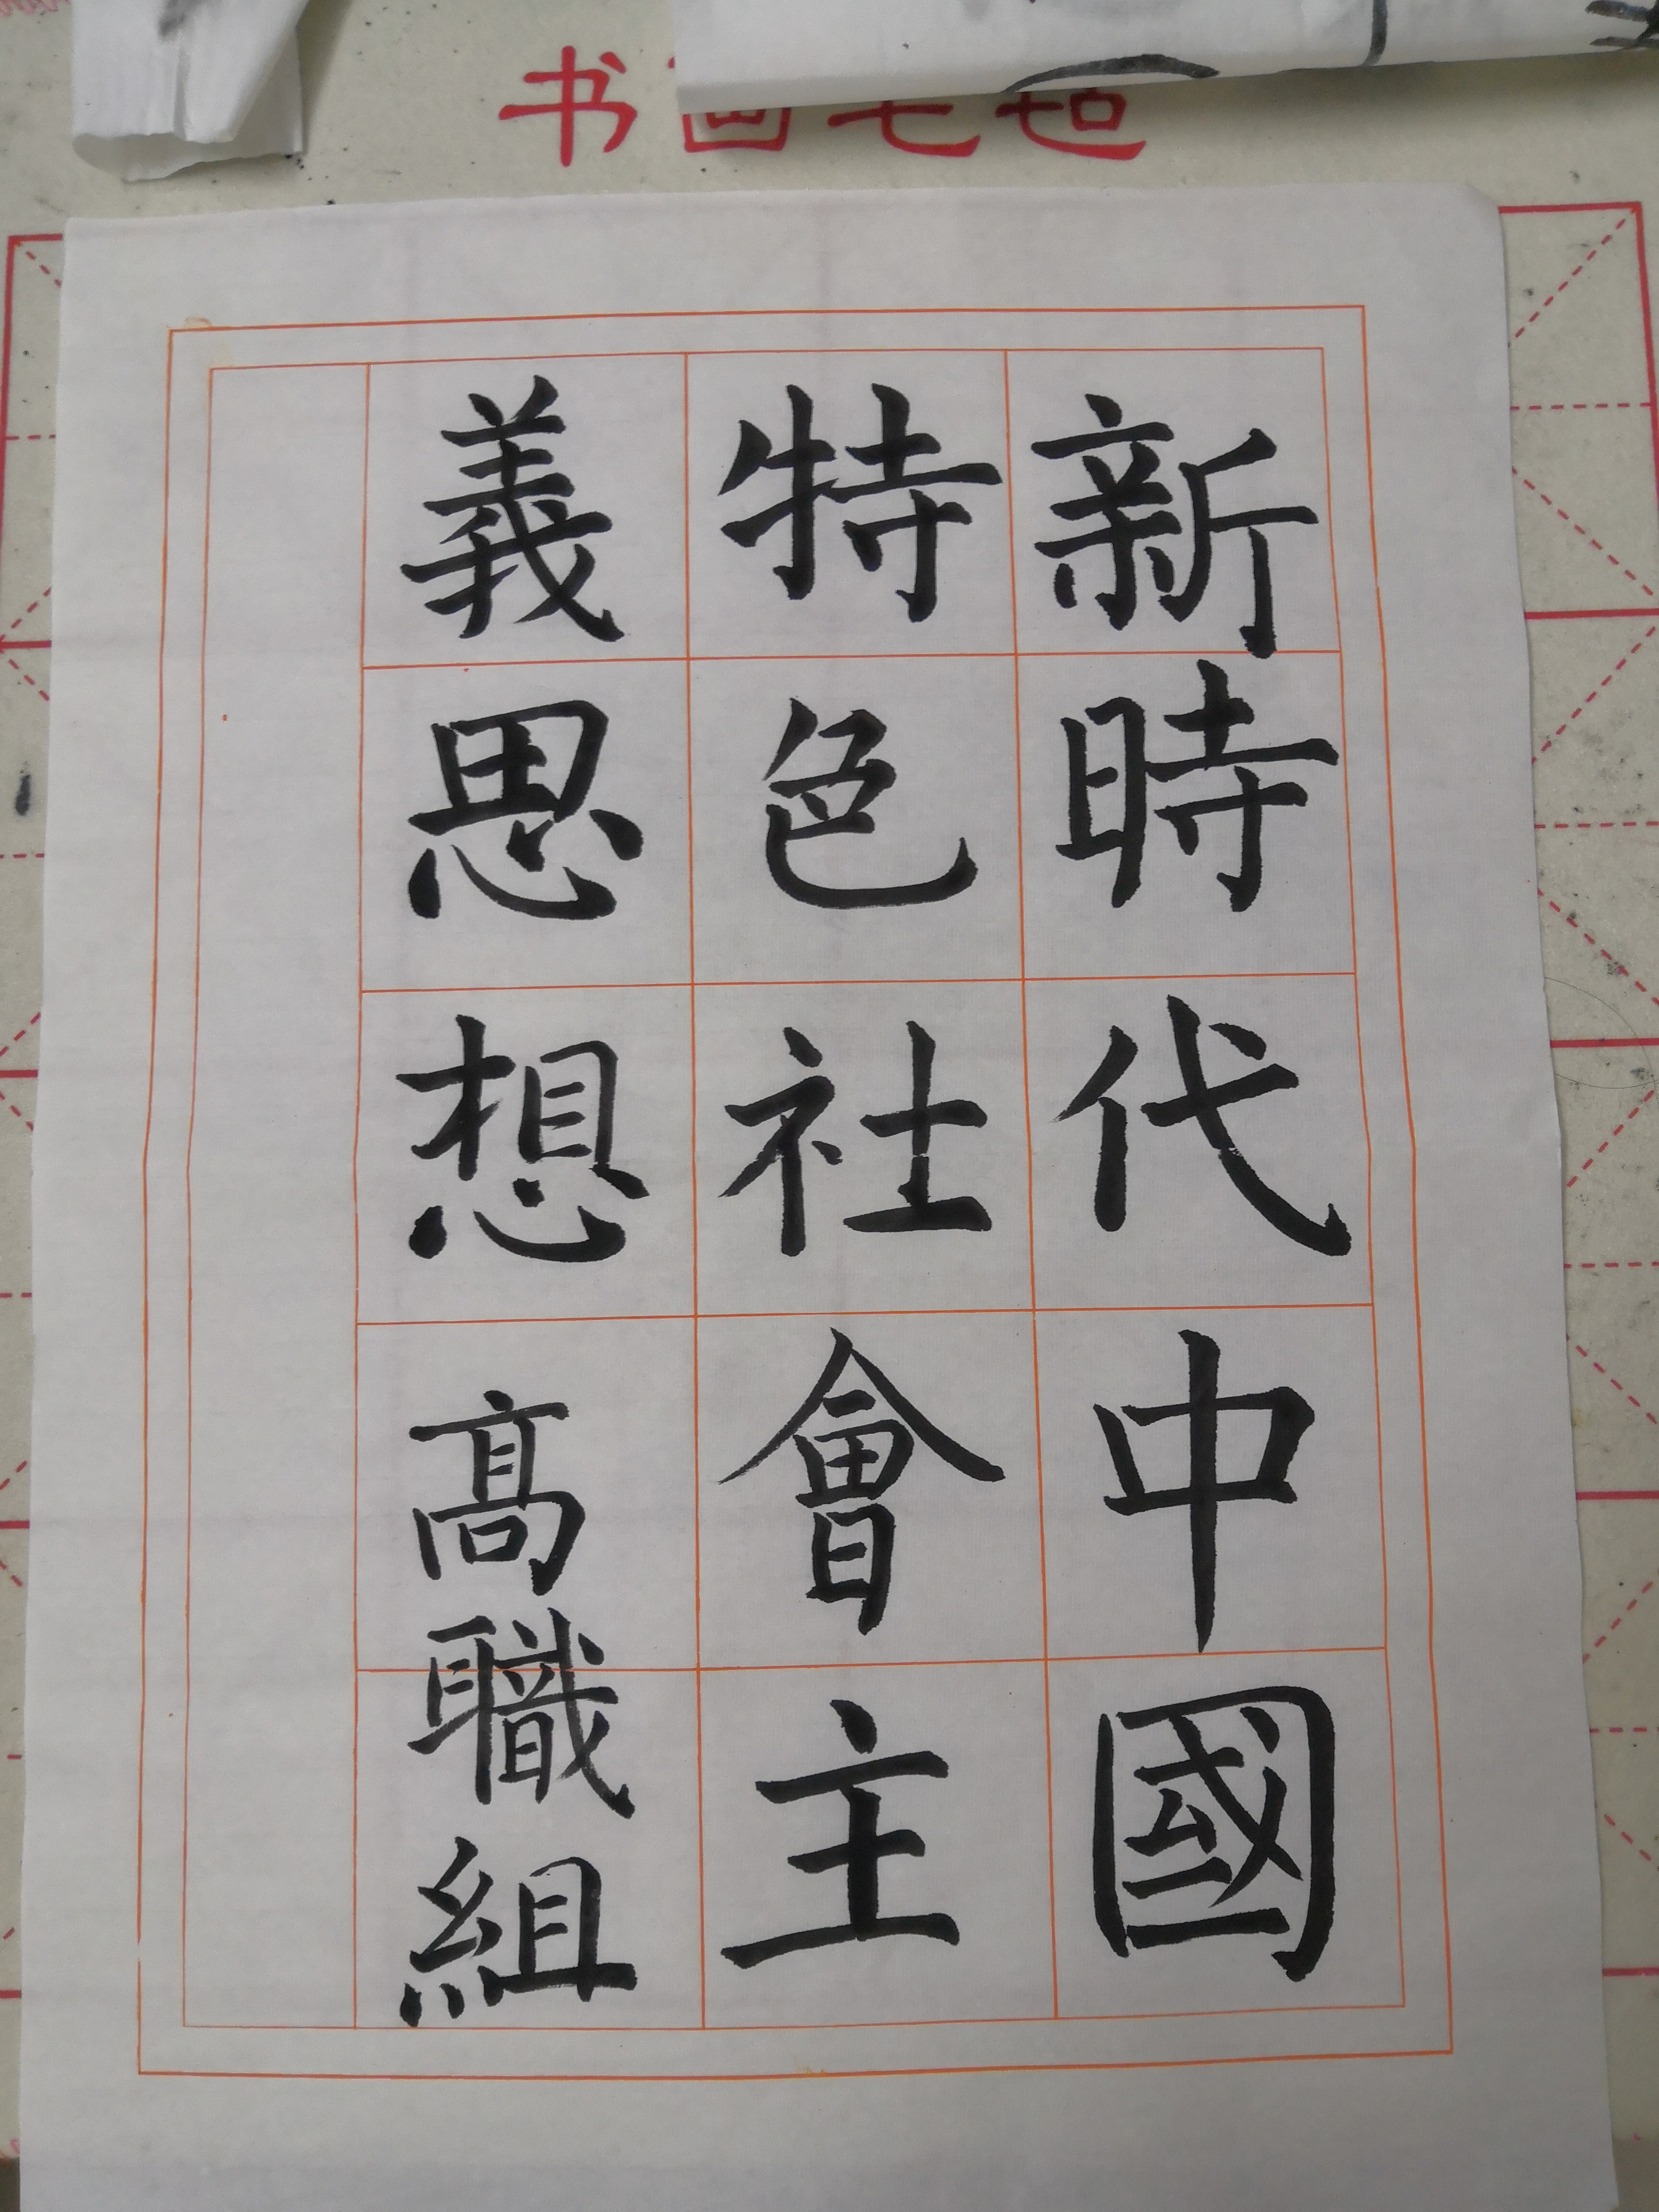 书画毛毡
新時代中國
特色社會主
義思想高職組